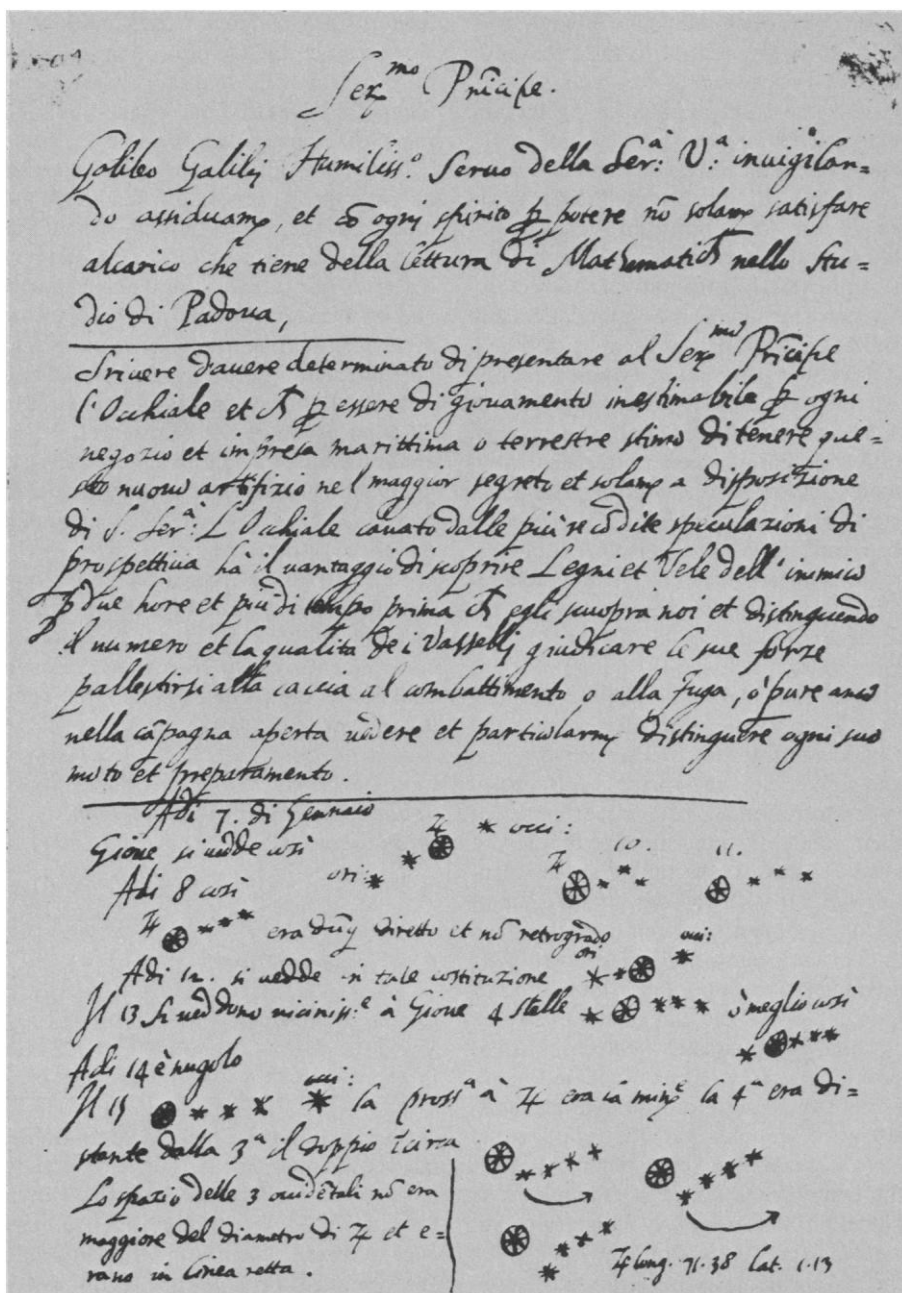 Ser.mo Prĩcipe.
Galileo Galilej Humiliss.o Seruo della Ser.a V.a inuigilan=
do assiduam.te, et cõ ogni spirito p potere nõ solam.te satisfare
alcarico che tiene della lettura di Mathematich nello Stu=
dio di Padoua,
Sriuere d'auere determinato di presentare al Ser.mo Prĩcipe
l'Occhiale et ch p essere di giouamento inestimabile p ogni
negozio et impresa marittima o terrestre stimo di tenere que=
sto nuouo artifizio nel maggior segreto et solam.te a disposizione
di S. Ser.a: L'Occhiale cauato dalle più recõdite speculazioni di
prospettiua hà il uantaggio di scoprire Legni et Vele dell'inimico
p due hore et più di tempo prima ch egli scuopra noi et distinguẽdo
il numero et la qualità de i Vasselli giudicare le sue forze
pallestirsi alla caccia al combattimento o alla fuga, ò pure anco
nella cãpagna aperta uedere et particolarm.te distinguere ogni suo
moto et preparamento.
Adi 7. di Gennaio
Gioue si uedde così ♃ * occi:
ori: * *
Adi 8 così ♃ * * * 10. ♃ * * * 11. * * *
era dũq diretto et nõ retrogrado
Adi 12. si uedde in tale costituzione ori: * * * occi:
Il 13 si ueddono uiciniss.e à Gioue 4 stelle * * * * ò meglio così
* * * *
Adi 14 è nugolo
Il 15 * * * * occi: la pross.a à ♃ era la min.e la 4.a era di=
stante dalla 3.a il doppio ĩcirca
Lo spazio delle 3 occidẽtali nõ era
maggiore del diametro di ♃ et e=
rano in linea retta.
♃ long. 71.38 lat. 1.13